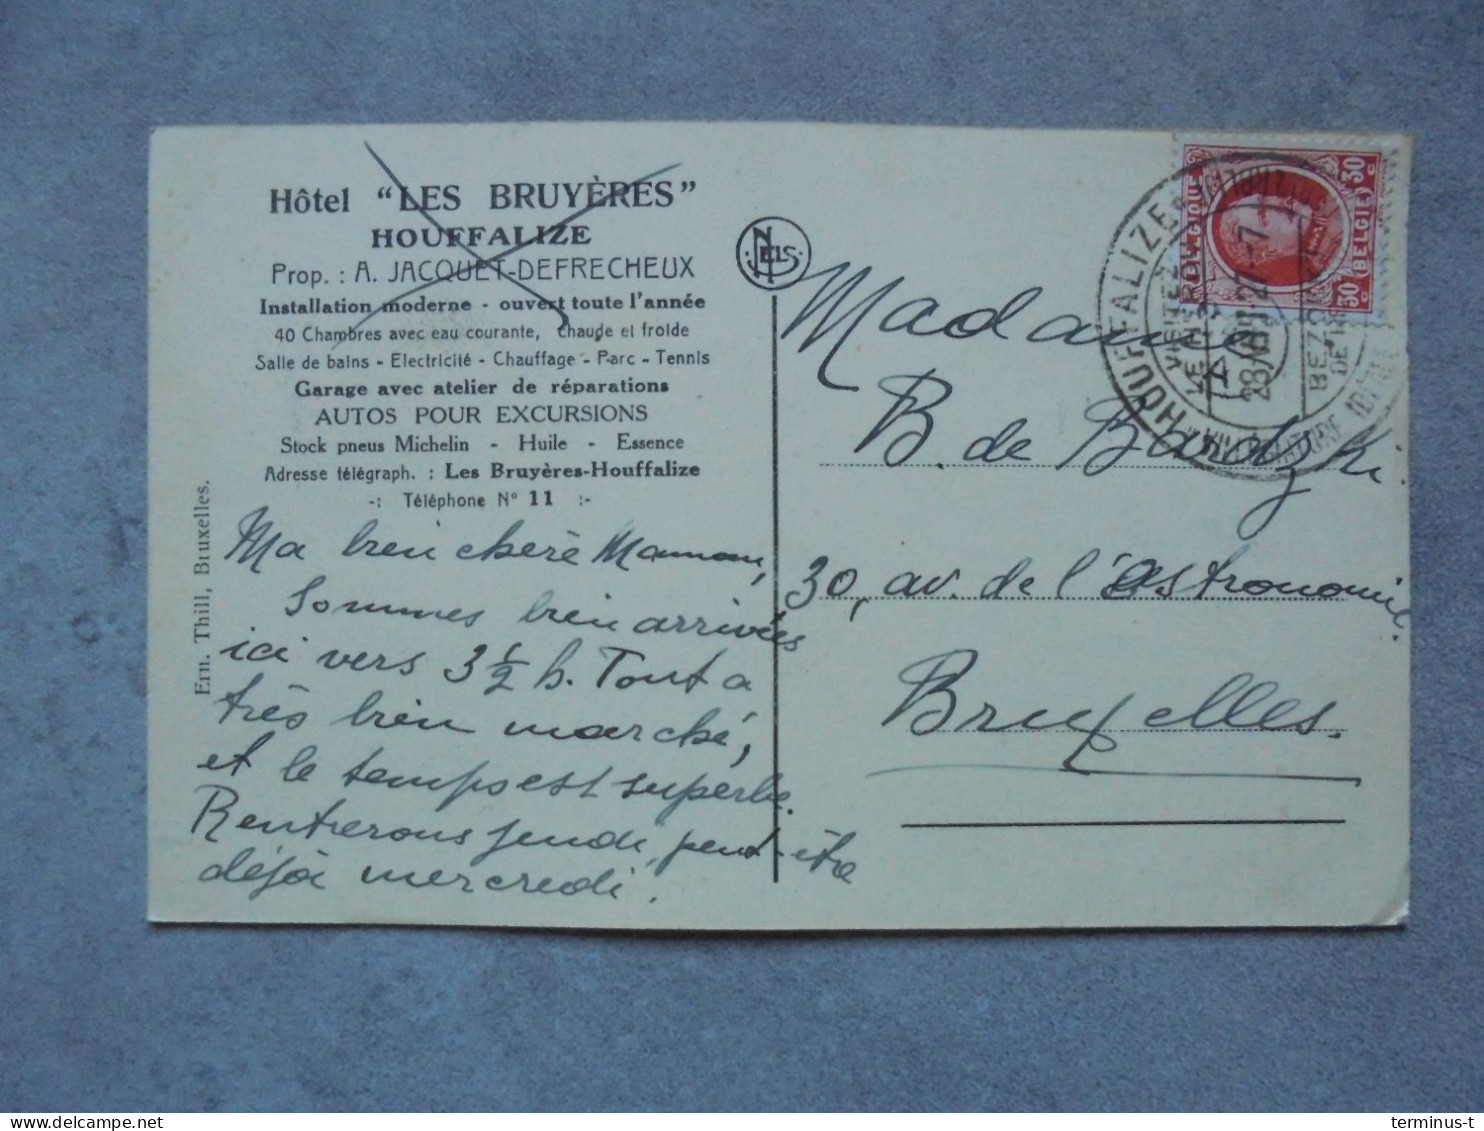 Hôtel "LES BRUYÈRES"
HOUFFALIZE
Prop. : A. JACQUET-DEFRECHEUX
Installation moderne - ouvert toute l'année
40 Chambres avec eau courante, chaude et froide
Salle de bains - Electricité - Chauffage - Parc - Tennis
Garage avec atelier de réparations
AUTOS POUR EXCURSIONS
Stock pneus Michelin - Huile - Essence
Adresse télégraph. : Les Bruyères-Houffalize
-: Téléphone N° 11 :-
Ma bien chère Maman,
Sommes bien arrivées
ici vers 3 ½ h. Tout a
très bien marché,
et le temps est superbe.
Rentrerons jeudi, peut-être
déjà mercredi.
Ern. Thill, Bruxelles.
NELS
Madame
B. de
30, av. de l'Astronomie.
Bruxelles.
BELGIQUE
BELGIË
30 c 30 c
HOUFFALIZE
VISITEZ